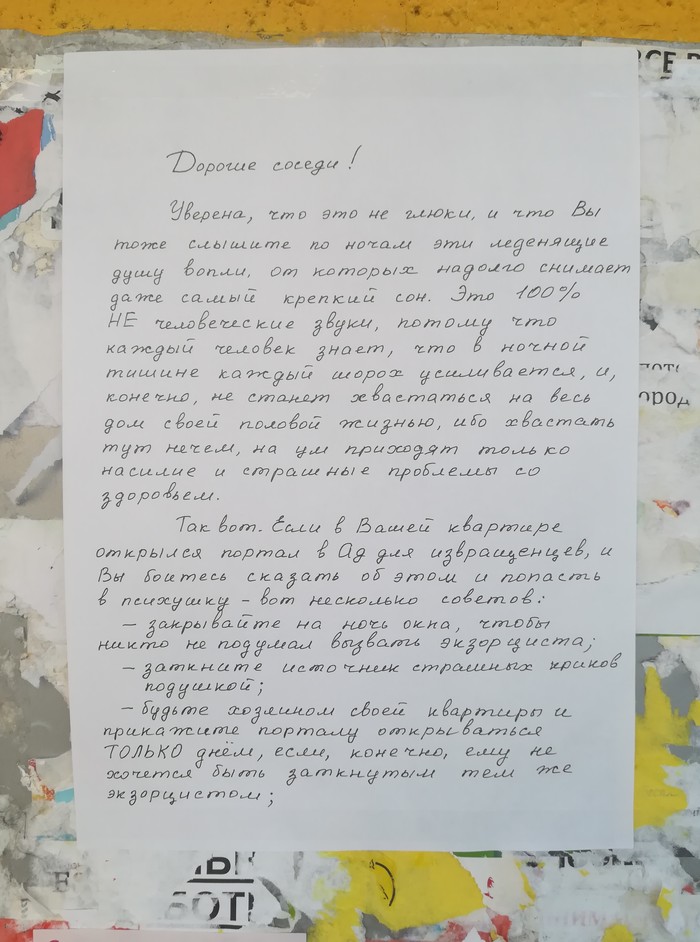 ВСЕ В
Дорогие соседи!
Уверена, что это не глюки, и что Вы
тоже слышите по ночам эти леденящие
душу вопли, от которых надолго снимает
даже самый крепкий сон. Это 100%
НЕ человеческие звуки, потому что
каждый человек знает, что в ночной
тишине каждый шорох усиливается, и,
конечно, не станет хвастаться на весь
дом своей половой жизнью, ибо хвастать
тут нечем, на ум приходят только
насилие и страшные проблемы со
здоровьем.
Так вот. Если в Вашей квартире
открылся портал в Ад для извращенцев, и
Вы боитесь сказать об этом и попасть
в психушку – вот несколько советов:
– закрывайте на ночь окна, чтобы
никто не подумал вызвать экзорциста;
– заткните источник страшных криков
подушкой;
– будьте хозяином своей квартиры и
прикажите порталу открываться
ТОЛЬКО днём, если, конечно, ему не
хочется быть заткнутым тем же
экзорцистом;
ород
БОТ!